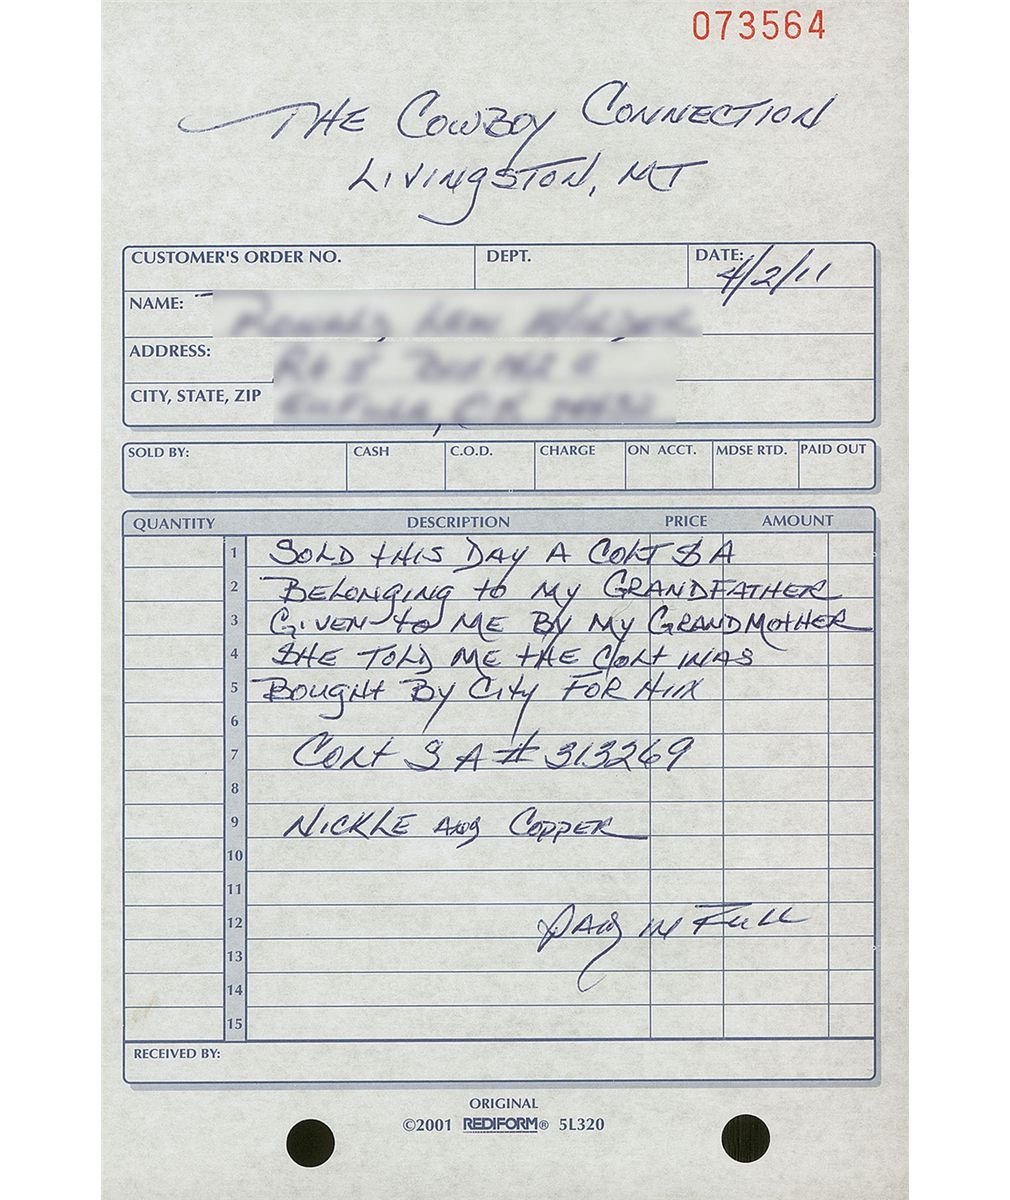 073564
THE COWBOY CONNECTION
LIVINGSTON, MT
CUSTOMER'S ORDER NO. DEPT. DATE: 4/2/11
NAME:
ADDRESS:
CITY, STATE, ZIP
SOLD BY: CASH C.O.D. CHARGE ON ACCT. MDSE RTD. PAID OUT
QUANTITY DESCRIPTION PRICE AMOUNT
1 SOLD THIS DAY A COLT S A
2 BELONGING TO MY GRANDFATHER
3 GIVEN TO ME BY MY GRANDMOTHER
4 SHE TOLD ME THE COLT WAS
5 BOUGHT BY CITY FOR HIM
6
7 COLT S A # 313269
8
9 NICKLE AND COPPER
10
11
12 PAID IN FULL
13
14
15
RECEIVED BY:
ORIGINAL
©2001 REDIFORM® 5L320